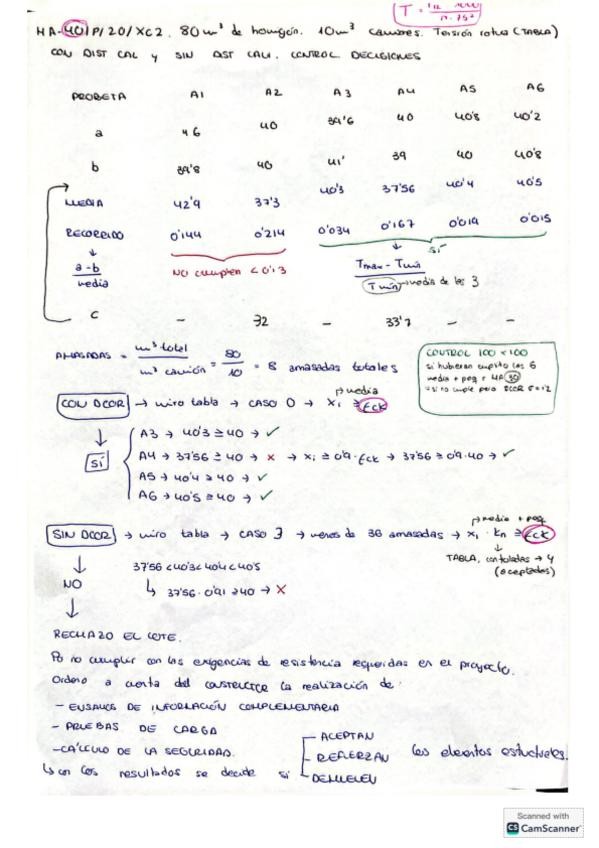 HA-40/P/20/XC2. 80m³ de hormigón. 10m³ camiones. Tensión rotura (TABLA)
CON DIST CAL y SIN DIST CALI. CONTROL DECISIONES
PROBETA A1 A2 A3 A4 A5 A6
a 46 40 39'6 40 40'8 40'2
b 39'8 40 41' 39 40 40'8
MEDIA 42'9 37'3 40'3 37'56 40'4 40'5
RECORRIDO 0'144 0'214 0'034 0'167 0'019 0'015
↓ NO cumplen < 0'13 ↓ sí
a-b / media
Tmax - Tmín / Tmín → media de las 3
C - 32 - 33'7 - -
AMASADAS = m³ total / m³ camión = 80 / 10 = 8 amasadas totales
CONTROL 100 × 100
si hubieran cumplido los 6
media + peq ≠ HA 30
CON DCOR → miro tabla → CASO 0 → xi ≥ fck
→ media
↓
SÍ
A3 → 40'3 ≥ 40 → ✓
A4 → 37'56 ≥ 40 → × → xi ≥ 0'9·fck → 37'56 ≥ 0'9·40 → ✓
A5 → 40'4 ≥ 40 → ✓
A6 → 40'5 ≥ 40 → ✓
→ media + peq
SIN DCOR → miro tabla → CASO 3 → menos de 36 amasadas → x1 · kn ≥ fck
↓
TABLA, controladas → 4
(aceptadas)
NO
↓
37'56 < 40'3 < 40'4 < 40'5
↳ 37'56 · 0'91 ≥ 40 → ×
RECHAZO EL LOTE.
Po no cumplir con las exigencias de resistencia requeridas en el proyecto.
Ordeno a cuenta del CONSTRUCTOR la realización de:
- ENSAYOS DE INFORMACIÓN COMPLEMENTARIA
- PRUEBAS DE CARGA
- CÁLCULO DE LA SEGURIDAD.
↳ con los resultados se decide si
- ACEPTAN
- REFUERZAN los elementos estructurales.
- DEMUELEN
Scanned with
CS CamScanner